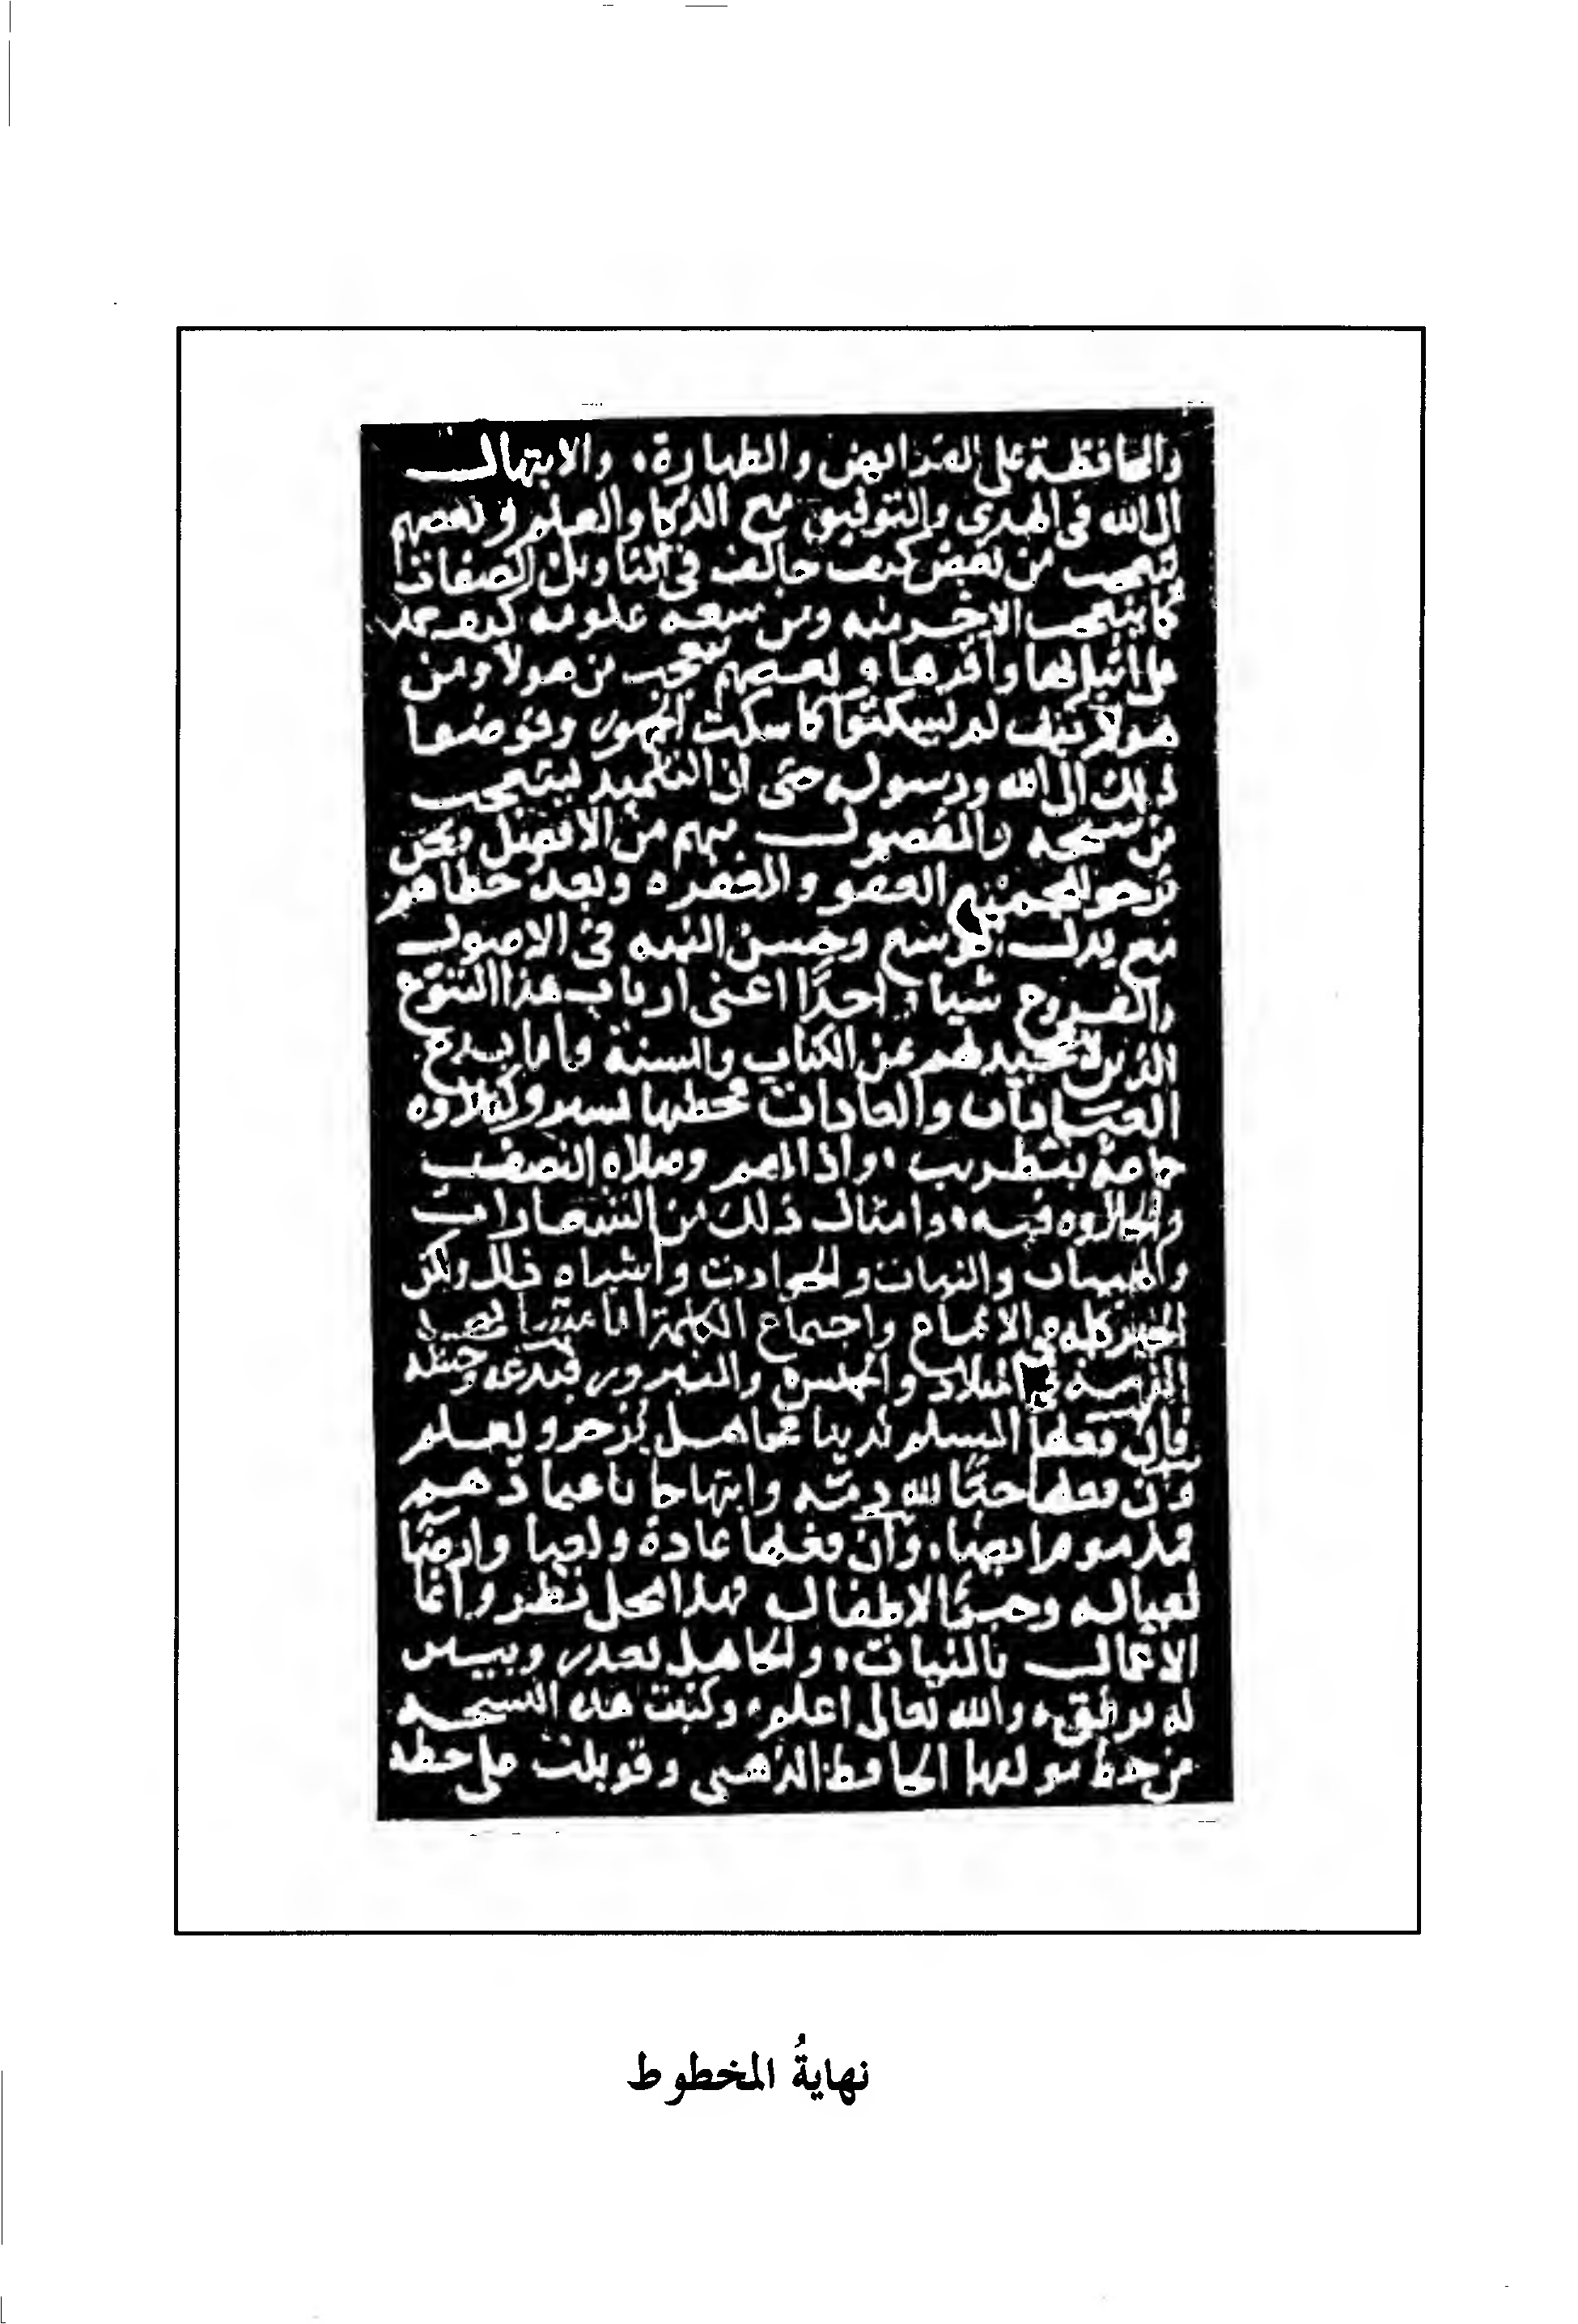 والمحافظة على الفرائض والطهارة والابتهال
الى الله فى الهدى والتوفيق مع الذكا والعلم وبعضهم
يتعجب من بعض كيف خالف فى التاويل الصفات
كما يتعجب الاخر منه ومن سعة علومه كيف
على اثباتها واقرها وبعضهم يتعجب من هولا ومن
هولا كيف لم يسكتوا كما سكت الجمهور وفوضوا
ذلك الى الله ورسوله حتى ان التلميذ ليتعجب
من شيخه والمفضول منهم من الافضل ونحن
نرجو للجميع العفو والمغفرة وبعد خطاهم
مع بذل الوسع وحسن النية فى الاصول
والفروع شيا واحدا اعنى ارباب هذا التنوع
الذين لا محيد لهم عن الكتاب والسنة واما بدع
العبادات والعادات فخطبها يسير وكتلاوة
جماعة بتطريب واذان وصلاة النصف
والحلاوة فيه وامثال ذلك من الشعارات
والهيئات والنيات والحوادث واشباه ذلك ولكن
الخير كله فى الاتباع واجتماع الكلمة اما
فى الميلاد والخميس والنيروز فبدعة وحشة
فان فعلها المسلم تدينا فجاهل يزجر ويعلم
وان فعلها حبا لاهل الذمة وابتهاجا باعيادهم
فمذموم ايضا وان فعلها عادة ولعبا وارضا
لعياله وجبرا لاطفال فهذا محل نظر وانما
الاعمال بالنيات والجاهل يعذر ويبين
له برفق والله تعالى اعلم وكتبت هذه النسخة
من خط مولفها الحافظ الذهبي وقوبلت على خطه
نهايةُ المخطوط